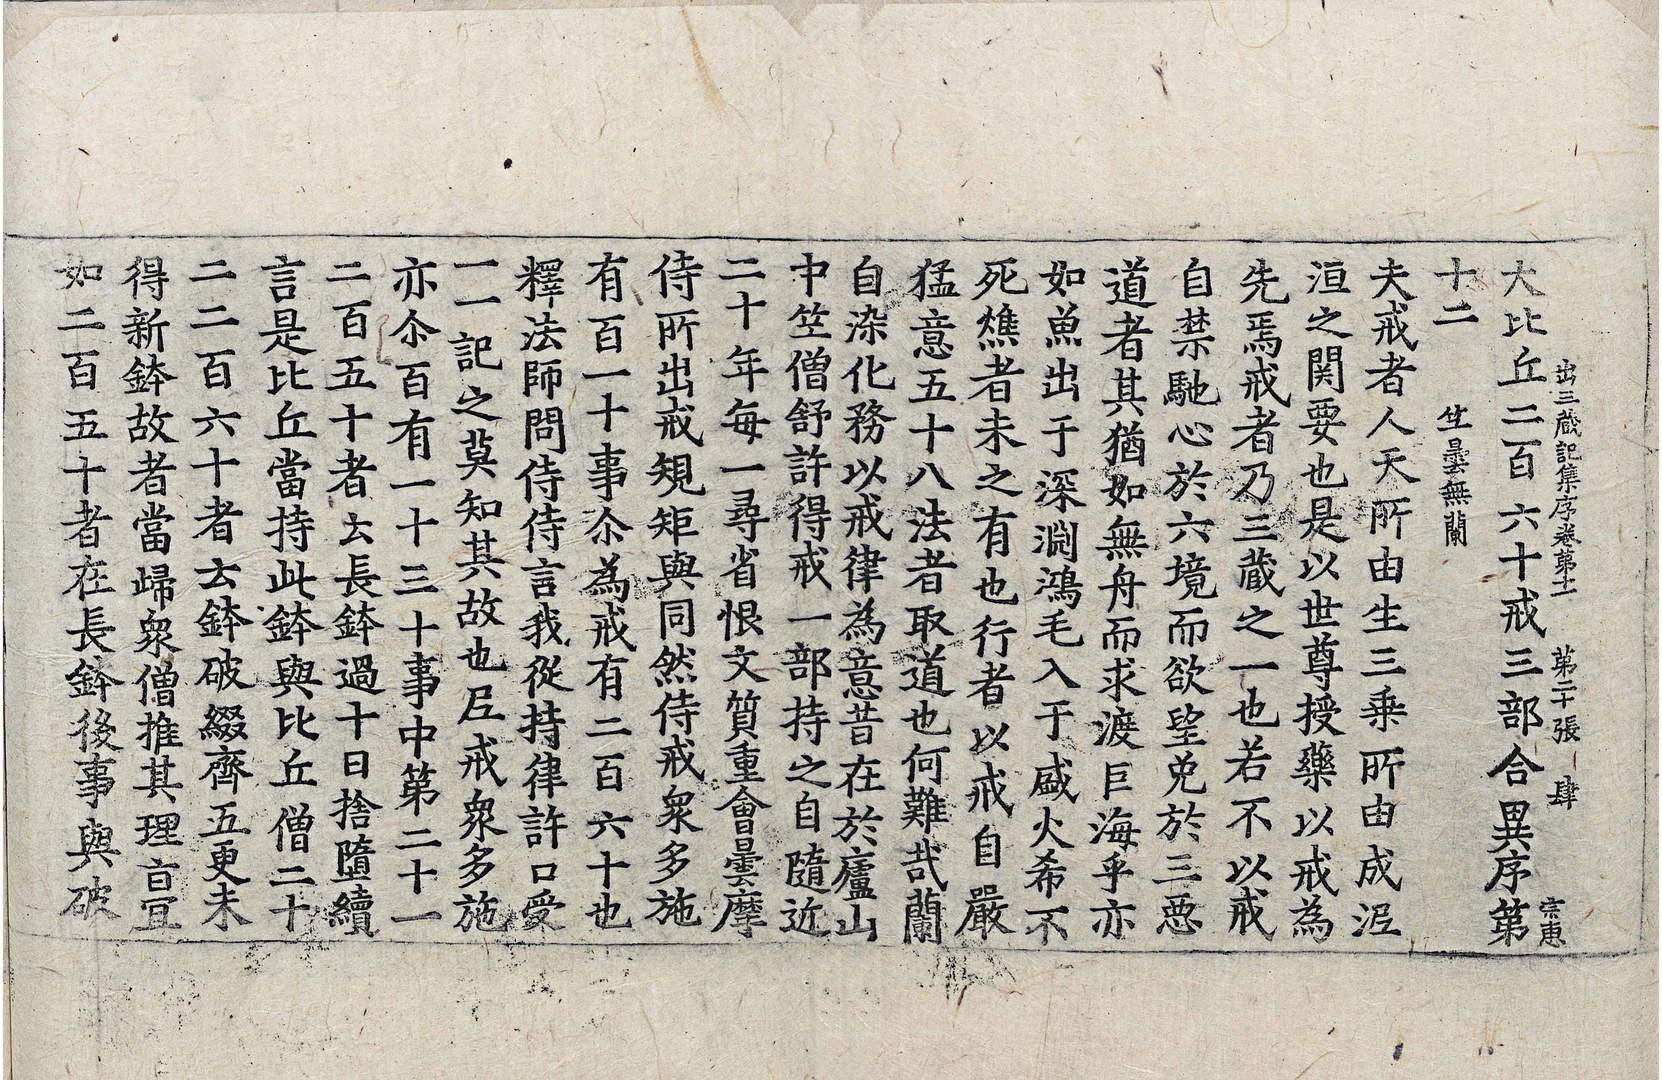 出三蔵記集序卷第十一　第二十張　肆　宗惠
大比丘二百六十戒三部合異序第
十二　竺曇無蘭
夫戒者人天所由生三乗所由成泥
洹之関要也是以世尊授藥以戒為
先焉戒者乃三蔵之一也若不以戒
自禁馳心於六境而欲望免於三惡
道者其猶如無舟而求渡巨海乎亦
如魚出于深淵鴻毛入于盛火希不
死燋者未之有也行者以戒自嚴
猛意五十八法者取道也何難㢤蘭
自染化務以戒律為意昔在於廬山
中竺僧舒許得戒一部持之自隨近
二十年每一尋省恨文質重會曇摩
侍所出戒規矩與同然侍戒衆多施
有百一十事尒為戒有二百六十也
釋法師問侍侍言我從持律許口受
一一記之莫知其故也尼戒衆多施
亦尒百有一十三十事中第二十一
二百五十者云長鉢過十日捨墮續
言是比丘當持此鉢與比丘僧二十
二二百六十者云鉢破綴齊五更未
得新鉢故者當歸衆僧推其理㫖冝
如二百五十者在長鉢後事與破